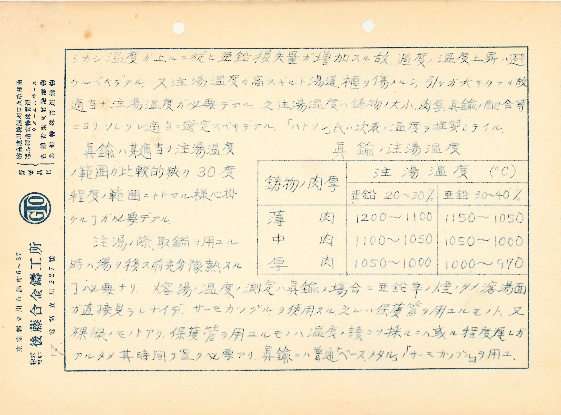 シカシ温度ガ上ルニ従ヒ亜鉛損失量ガ増加スル故過度ノ温度上昇ハ避
ケルベキデアル。又注湯温度ガ高スギルト湯道、樋ヲ傷メルシ、引ケガ大キクナル故
適当ナ注湯温度ガ必要デアル。之注湯温度ハ鋳物ノ大小、肉厚、真鍮ノ配合等
ニヨリソレゾレ適当ニ選定スベキデアル。氏ハ次表ノ温度ヲ推奨シテイル。
真鍮ノ注湯温度
真鍮ハ其適当ノ注湯温度
ノ範囲ガ比較的狭ク30度
程度ノ範囲ニトドマル様心掛
ケルヿガ必要デアル。
注湯ノ際、取鍋ヲ用ユル
時ハ湯ヲ移ス前充分豫熱スル
鋳物ノ肉厚 注湯温度 (℃)
亜鉛 20〜30% 亜鉛 30〜40%
薄肉 1200〜1100 1150〜1050
中肉 1100〜1050 1050〜1000
厚肉 1050〜1000 1000〜970
ヿ必要ナリ 熔湯ノ温度ノ測定ハ真鍮ノ場合ニ亜鉛華ノ煙ノタメ溶湯面
ガ直接見ラレナイデ、サーモカップルヲ使用スル之レハ保護管ヲ用ユルモノト、又
裸線ノモノトアリ、保護管ヲ用ユルモノハ温度ヲ読ミ採ルニハ或ル程度遅レガ
アルタメ其時間ヲ置ク必要アリ、真鍮ニハ普通「ベースメタル」「サーモカップル」ヲ用ユ、
GTO
後藤合金鑄工所
東京都立川市
電話立川227番